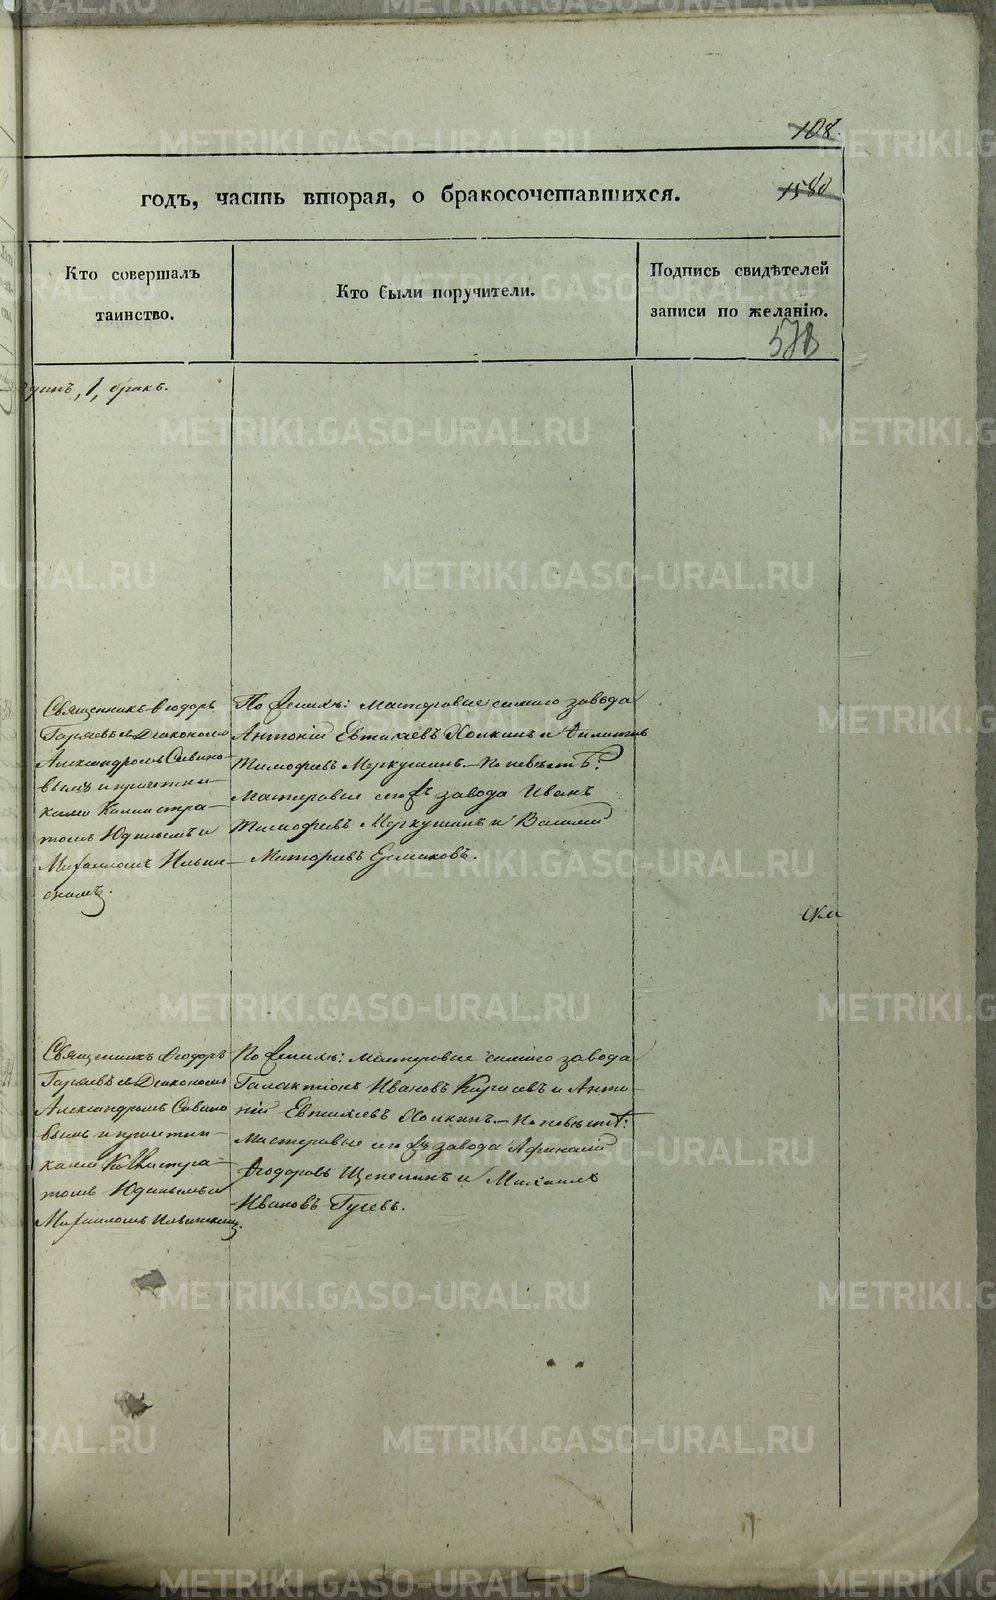 108
годъ, часть вторая, о бракосочетавшихся.
1580
Кто совершалъ
таинство.
Кто были поручители.
Подпись свидѣтелей
записи по желанію.
578
одинъ, 1, бракъ.
Священникъ Ѳеодоръ
Гаряевъ съ Діакономъ
Александромъ Савино-
вымъ и причетни-
ками Каллистра-
томъ Юдинымъ и
Михаиломъ Ильин-
скимъ.
По женихѣ: Мастеровые сего завода
Антоній Евтихіевъ Холкинъ и Филиппъ
Тимофеевъ Меркушинъ. По невѣстѣ:
Мастеровые сего завода Иванъ
Тимофеевъ Меркушинъ и Василій
Ермаковъ.
ска
Священникъ Ѳеодоръ
Гаряевъ съ Діакономъ
Александромъ Савино
вымъ и причетни-
ками Каллистра-
томъ Юдинымъ и
Михаиломъ Ильинскимъ.
По женихѣ: Мастеровые сего завода
Галактіонъ Ивановъ и Анто-
ній Евтихіевъ Холкинъ. По невѣстѣ:
Мастеровые завода Афанасій
Ѳеодоровъ Щепелинъ и Михаилъ
Ивановъ Гусевъ.
METRIKI.GASO-URAL.RU